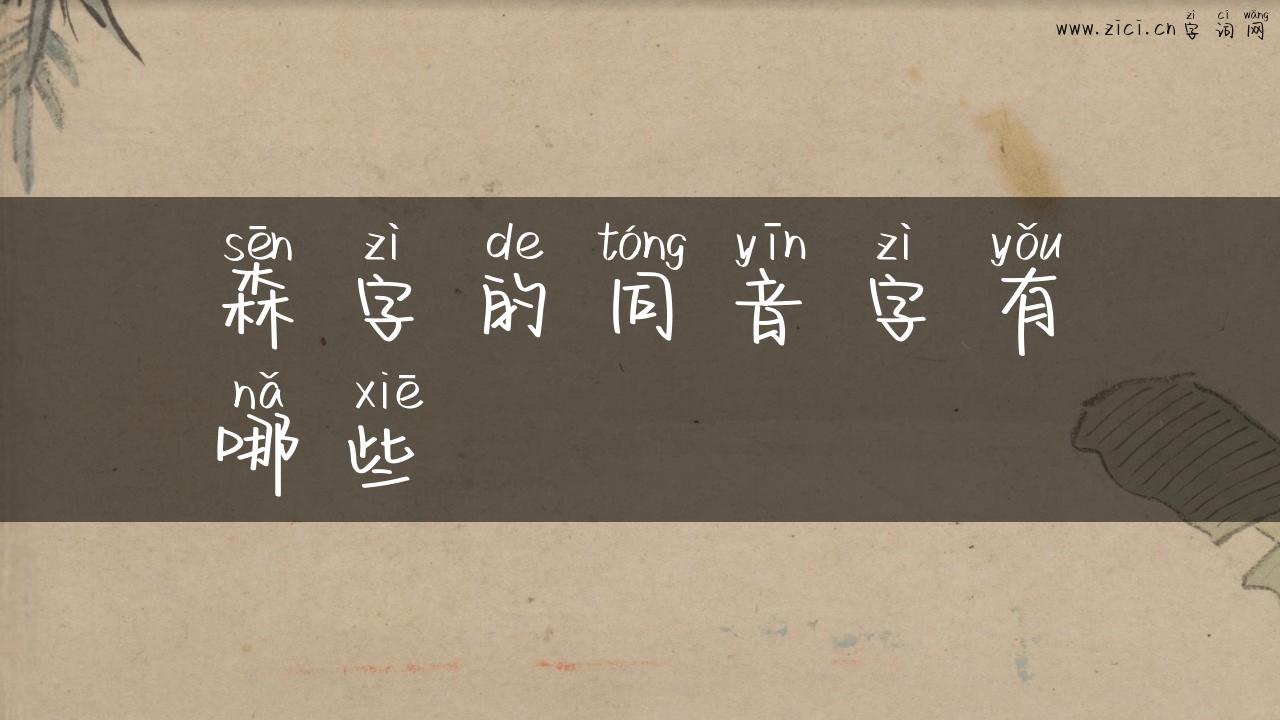 zì cí wǎng
www.zici.cn 字词网
sēn zì de tóng yīn zì yǒu
森字的同音字有
nǎ xiē
哪些